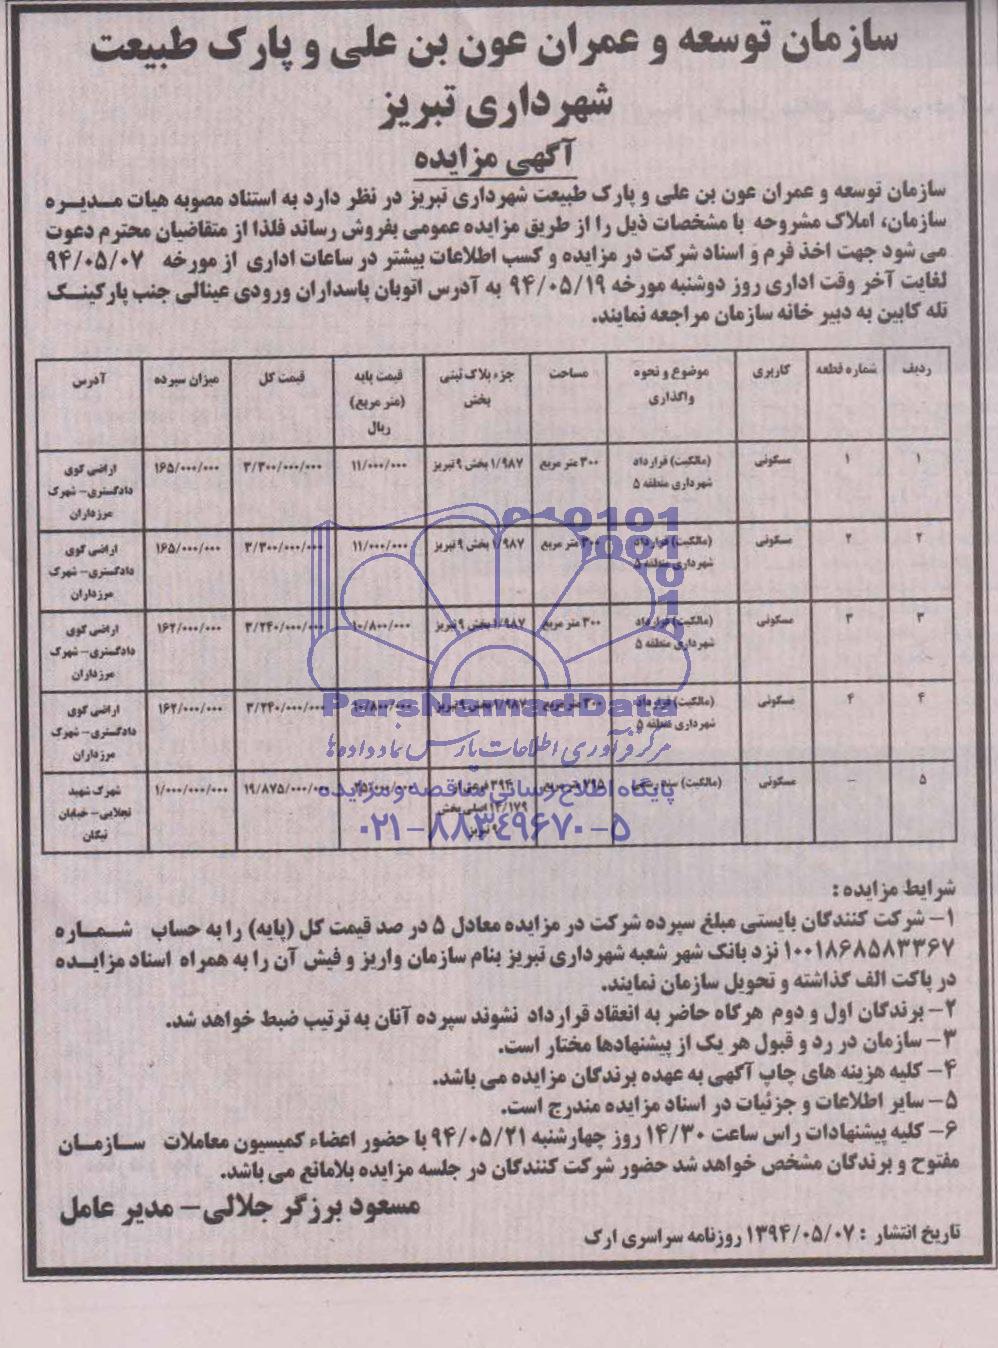 سازمان توسعه و عمران عون بن علی و پارک طبیعت
شهرداری تبریز
آگهی مزایده
سازمان توسعه و عمران عون بن علی و پارک طبیعت شهرداری تبریز در نظر دارد به استناد مصوبه هیات مـدیـره
سازمان، املاک مشروحه با مشخصات ذیل را از طریق مزایده عمومی بفروش رساند فلذا از متقاضیان محترم دعوت
می شود جهت اخذ فرم و اسناد شرکت در مزایده و کسب اطلاعات بیشتر در ساعات اداری از مورخه ۹۴/۰۵/۰۷
لغایت آخر وقت اداری روز دوشنبه مورخه ۹۴/۰۵/۱۹ به آدرس اتوبان پاسداران ورودی عینالی جنب پارکینـک
تله کابین به دبیر خانه سازمان مراجعه نمایند.
ردیف شماره قطعه کاربری موضوع و نحوه واگذاری مساحت جزء پلاک ثبتی بخش قیمت پایه (متر مربع) ریال قیمت کل میزان سپرده آدرس
۱ ۱ مسکونی (مالکیت) قرارداد شهرداری منطقه ۵ ۳۰۰ متر مربع ۱/۹۸۷ بخش ۹ تبریز ۱۱/۰۰۰/۰۰۰ ۳/۳۰۰/۰۰۰/۰۰۰ ۱۶۵/۰۰۰/۰۰۰ اراضی کوی دادگستری- شهرک مرزداران
۲ ۲ مسکونی (مالکیت) قرارداد شهرداری منطقه ۵ ۳۰۰ متر مربع ۱/۹۸۷ بخش ۹ تبریز ۱۱/۰۰۰/۰۰۰ ۳/۳۰۰/۰۰۰/۰۰۰ ۱۶۵/۰۰۰/۰۰۰ اراضی کوی دادگستری- شهرک مرزداران
۳ ۳ مسکونی (مالکیت) قرارداد شهرداری منطقه ۵ ۳۰۰ متر مربع ۱/۹۸۷ بخش ۹ تبریز ۱۰/۸۰۰/۰۰۰ ۳/۲۴۰/۰۰۰/۰۰۰ ۱۶۲/۰۰۰/۰۰۰ اراضی کوی دادگستری- شهرک مرزداران
۴ ۴ مسکونی (مالکیت) قرارداد شهرداری منطقه ۵ ۳۰۰ متر مربع ۱/۹۸۷ بخش ۹ تبریز ۱۰/۸۰۰/۰۰۰ ۳/۲۴۰/۰۰۰/۰۰۰ ۱۶۲/۰۰۰/۰۰۰ اراضی کوی دادگستری- شهرک مرزداران
۵ – مسکونی (مالکیت) ۷۹۵ متر مربع ۱۹/۸۷۵/۰۰۰/۰۰۰ ۱/۰۰۰/۰۰۰/۰۰۰ شهرک شهید تجلایی- خیابان نیکان
ParsNamadData
مرکز فرآوری اطلاعات پارس نماد داده ها
پایگاه اطلاع رسانی مناقصه و مزایده
۰۲۱-۸۸۳۴۹۶۷۰-۵
شرایط مزایده :
۱- شرکت کنندگان بایستی مبلغ سپرده شرکت در مزایده معادل ۵ در صد قیمت کل (پایه) را به حساب شـمـاره
۱۰۰۱۸۶۸۵۸۳۳۶۷ نزد بانک شهر شعبه شهرداری تبریز بنام سازمان واریز و فیش آن را به همراه اسناد مزایـده
در پاکت الف گذاشته و تحویل سازمان نمایند.
۲- برندگان اول و دوم هرگاه حاضر به انعقاد قرارداد نشوند سپرده آنان به ترتیب ضبط خواهد شد.
۳- سازمان در رد و قبول هر یک از پیشنهادها مختار است.
۴- کلیه هزینه های چاپ آگهی به عهده برندگان مزایده می باشد.
۵- سایر اطلاعات و جزئیات در اسناد مزایده مندرج است.
۶- کلیه پیشنهادات راس ساعت ۱۴/۳۰ روز چهارشنبه ۹۴/۰۵/۲۱ با حضور اعضاء کمیسیون معاملات سـازمـان
مفتوح و برندگان مشخص خواهد شد حضور شرکت کنندگان در جلسه مزایده بلامانع می باشد.
مسعود برزگر جلالی- مدیر عامل
تاریخ انتشار : ۱۳۹۴/۰۵/۰۷ روزنامه سراسری ارک